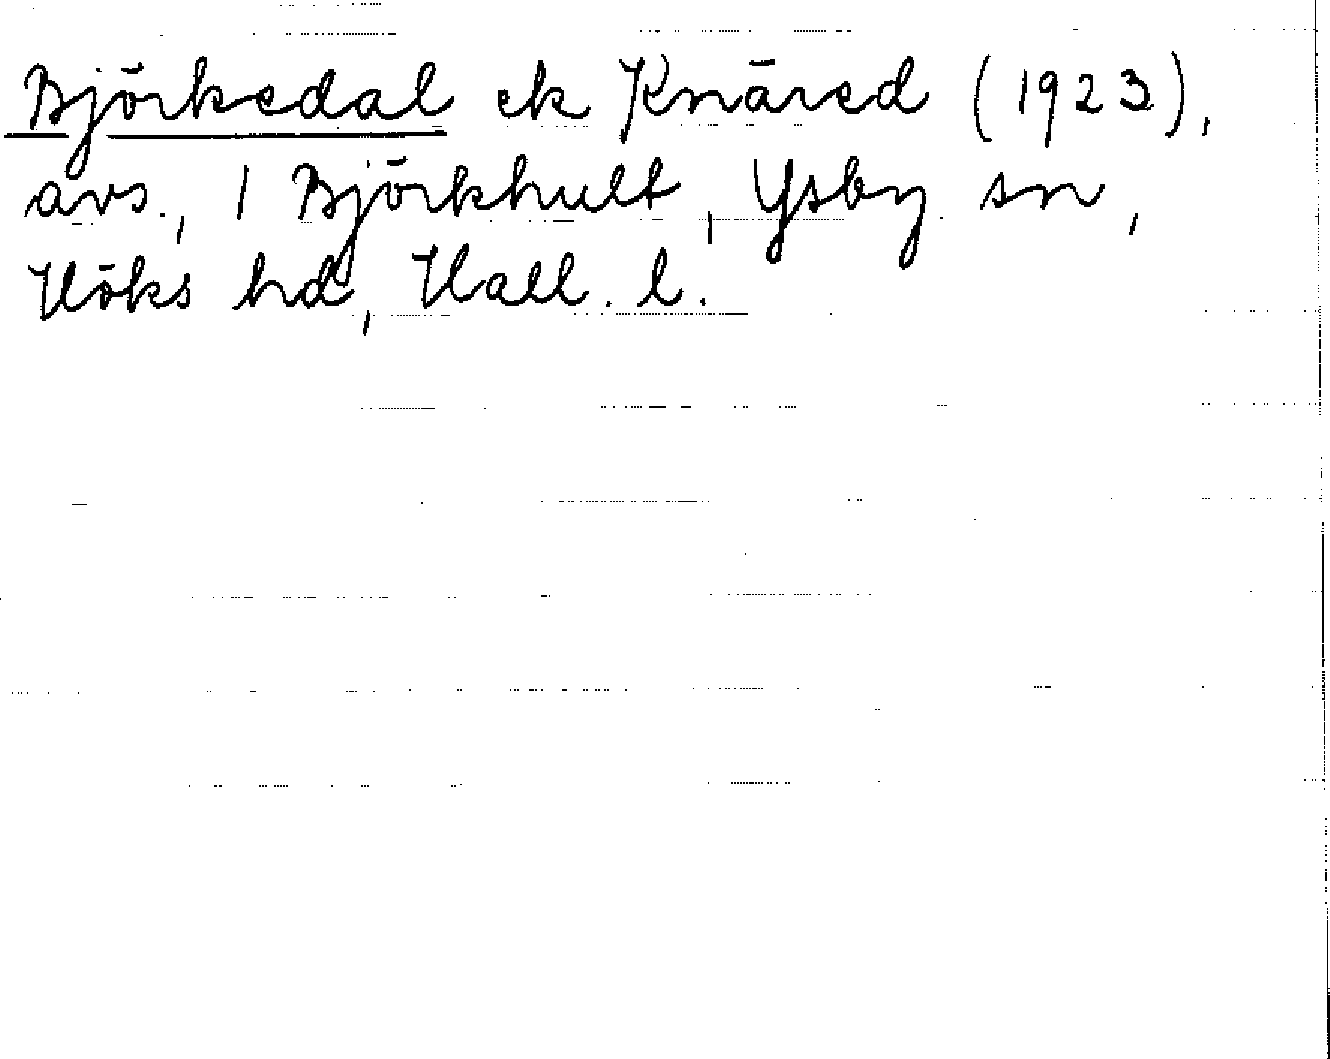 Björkedal ek Knäred (1923),
avs., 1 Björkhult, Ysby sn,
Höks hd, Hall. l.